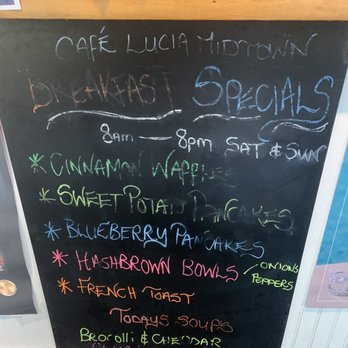 CAFÉ LUCIA MIDTOWN
BREAKFAST SPECIALS
8AM — 8PM SAT & SUN
* CINNAMAN WAFFLES
* SWEET POTATO PANCAKES
* BLUEBERRY PANCAKES
* HASHBROWN BOWLS / ONIONS PEPPERS
* FRENCH TOAST
TODAYS SOUPS
BROCOLLI & CHEDDAR